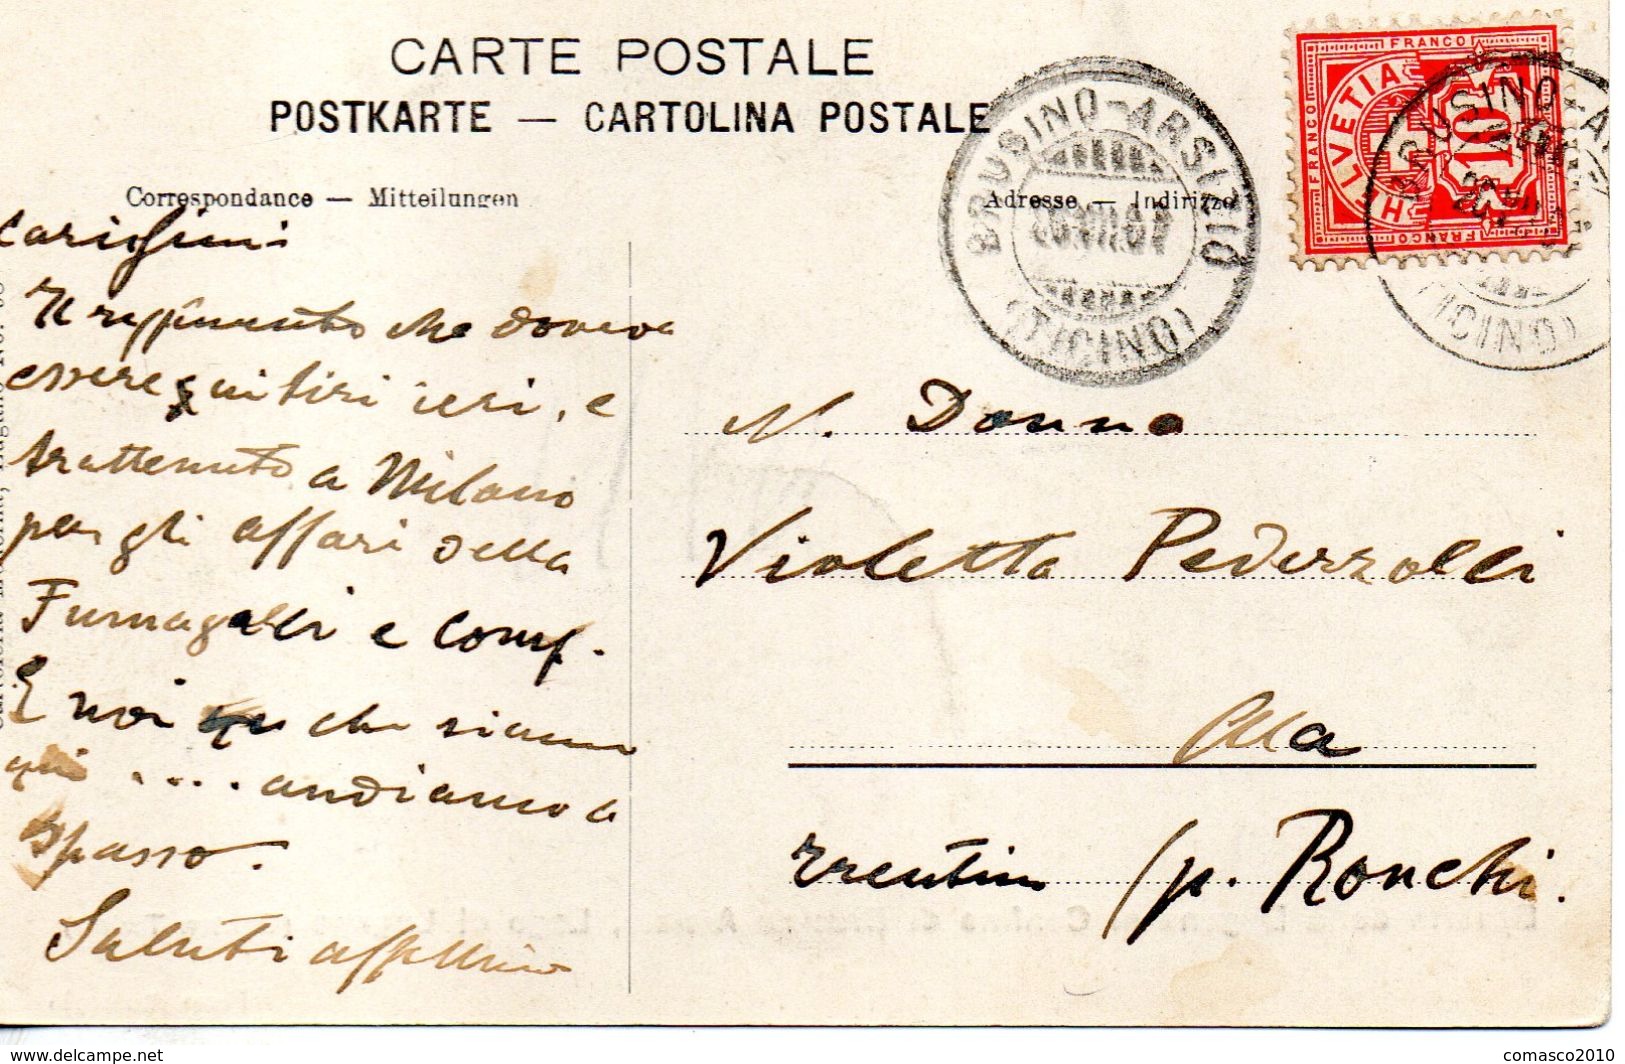 CARTE POSTALE
POSTKARTE — CARTOLINA POSTALE
Correspondance — Mitteilungen
Adresse. — Indirizzo
BRUSINO-ARSIZIO
(TICINO)
FRANCO
FRANCO
FRANCO
HELVETIA
10
BRUSINO A
(TICINO)
Carissimi
Il reggimento che doveva
essere qui tiri ieri, e
trattenuto a Milano
per gli affari della
Fumagalli e Comp.
E noi che siamo
qui .... andiamo a
spasso.
Saluti affettuosi
N. Donna
Violetta Pederzolli
Ala
Trentino (p. Ronchi.
www.delcampe.net
comasco2010